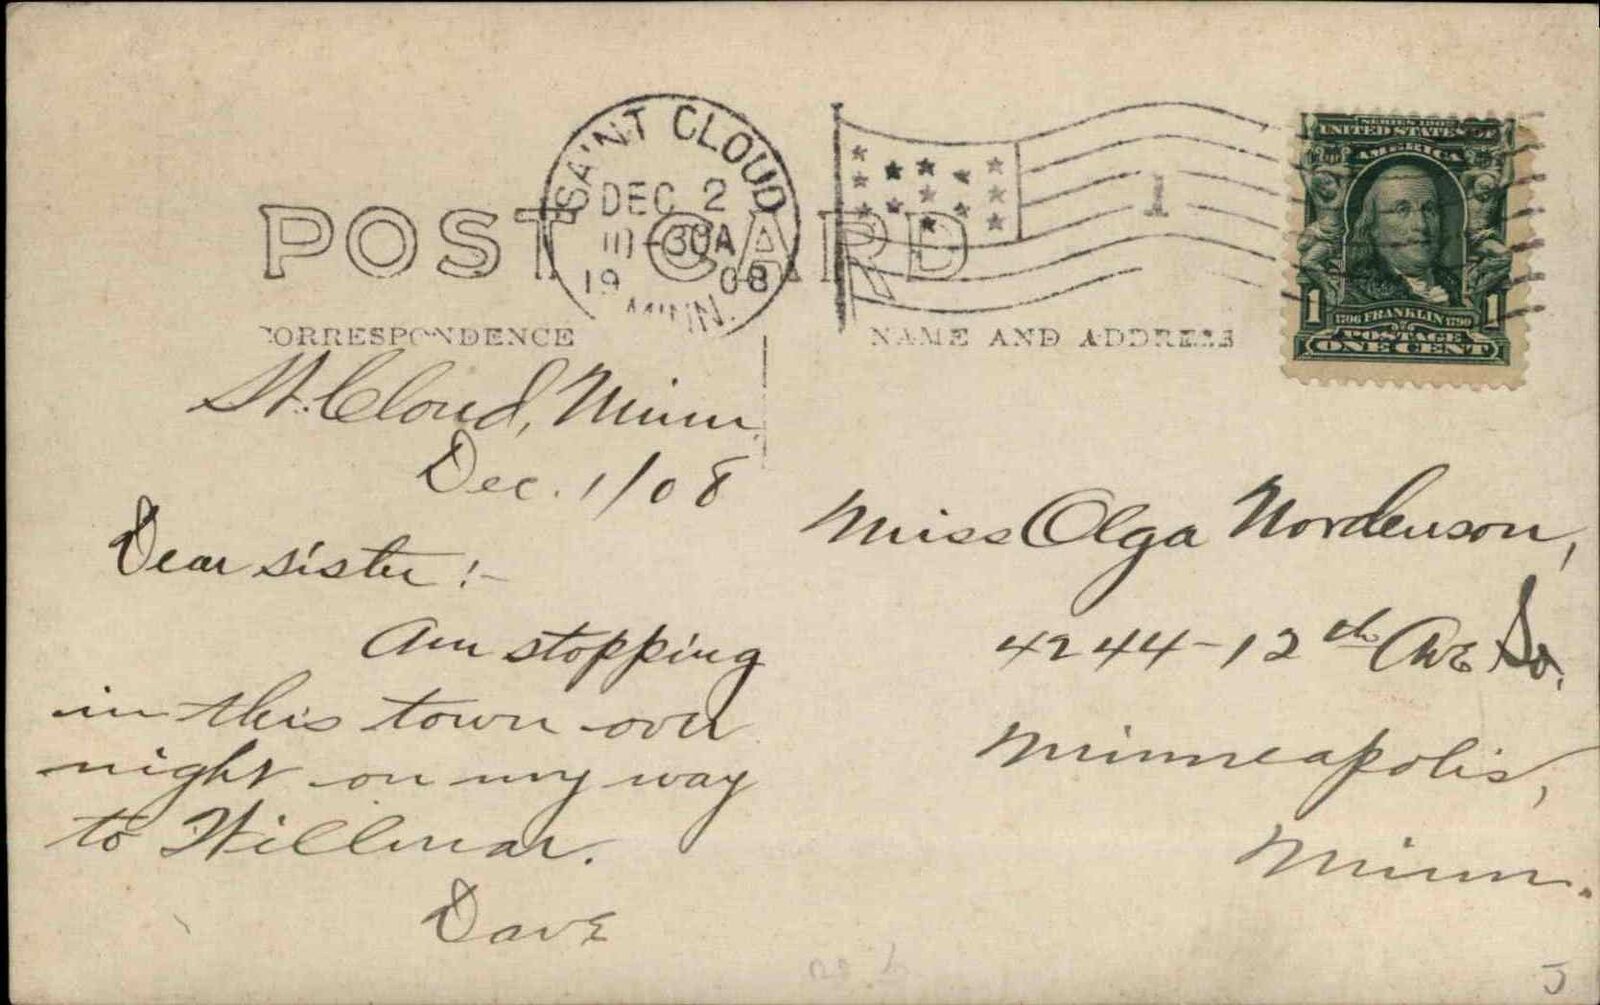 SAINT CLOUD
DEC 2
10-30A
19 08
MINN.
1
SERIES 1902
UNITED STATES OF
AMERICA
1 1
1706 FRANKLIN 1790
POSTAGE
ONE CENT
POST CARD
CORRESPONDENCE
NAME AND ADDRESS
St. Cloud, Minn.
Dec. 1/08
Dear sister:-
Am stopping
in this town over
night on my way
to Willmar.
Dave
Miss Olga Nordenson,
4244-12th Ave So.
Minneapolis,
Minn.
J